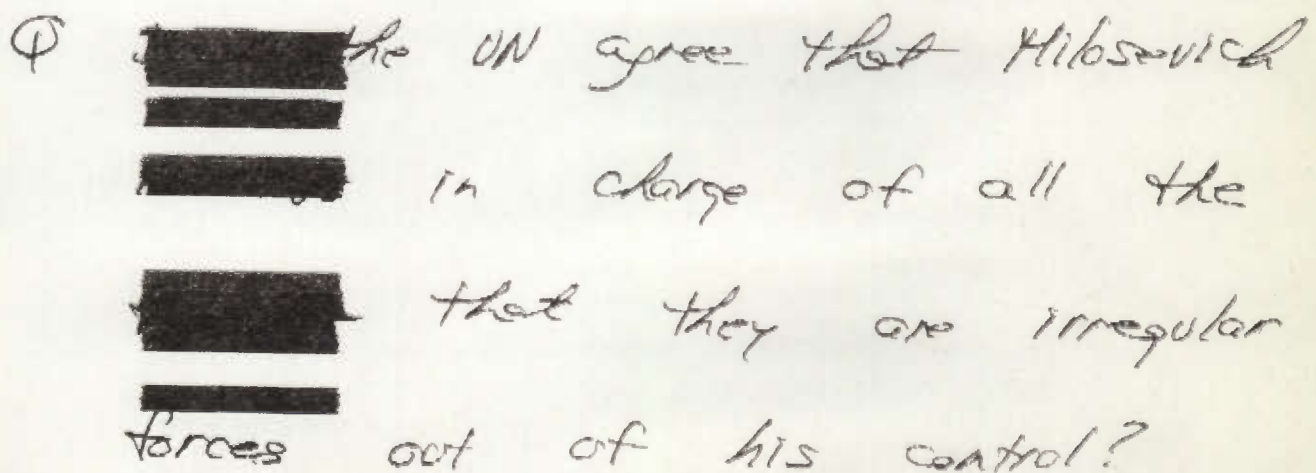 Q the UN agree that Milosevich
in charge of all the
that they are irregular
forces out of his control?